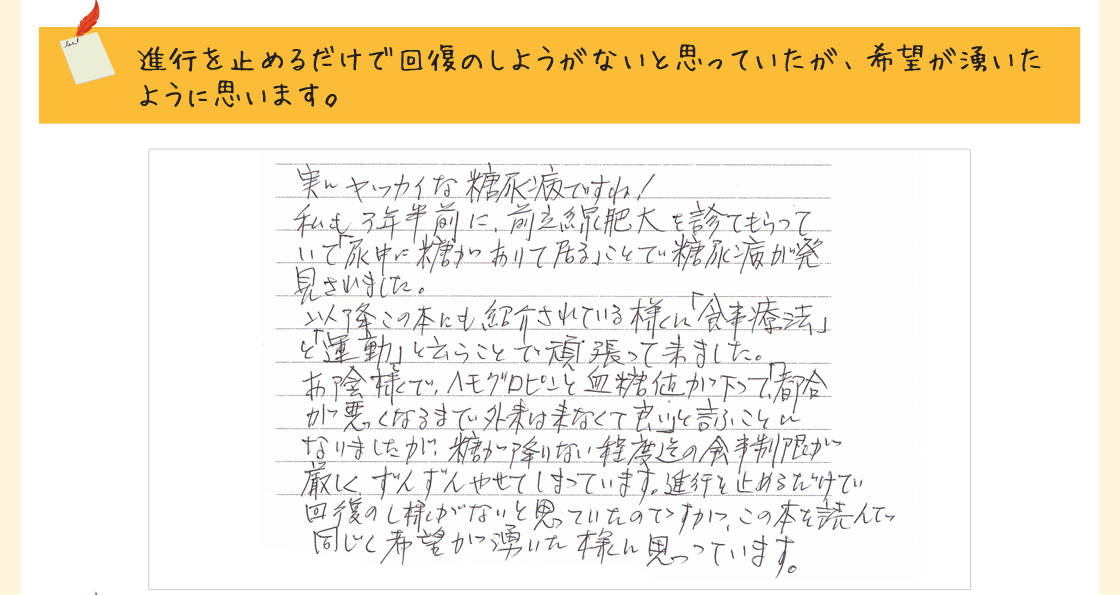 進行を止めるだけで回復のしようがないと思っていたが、希望が湧いた
ように思います。
実にヤッカイな糖尿病ですね!
私も3年半前に、前立線肥大を診てもらって
いて「尿中に糖がありて居る」ことで糖尿病が発
見されました。
以降この本にも紹介されている様に「食事療法」
と「運動」と云うことで頑張って来ました。
お陰様で、ヘモグロビンと血糖値が下って、「都合
が悪くなるまで外来は来なくて良い」と言ふことに
なりましたが、糖が降りない程度迄の食事制限が
厳しく、ずんずんやせてしまっています。進行を止めるだけでい
回復のし様がないと思っていたのですが、この本を読んで
同じく希望が湧いた様に思っています。